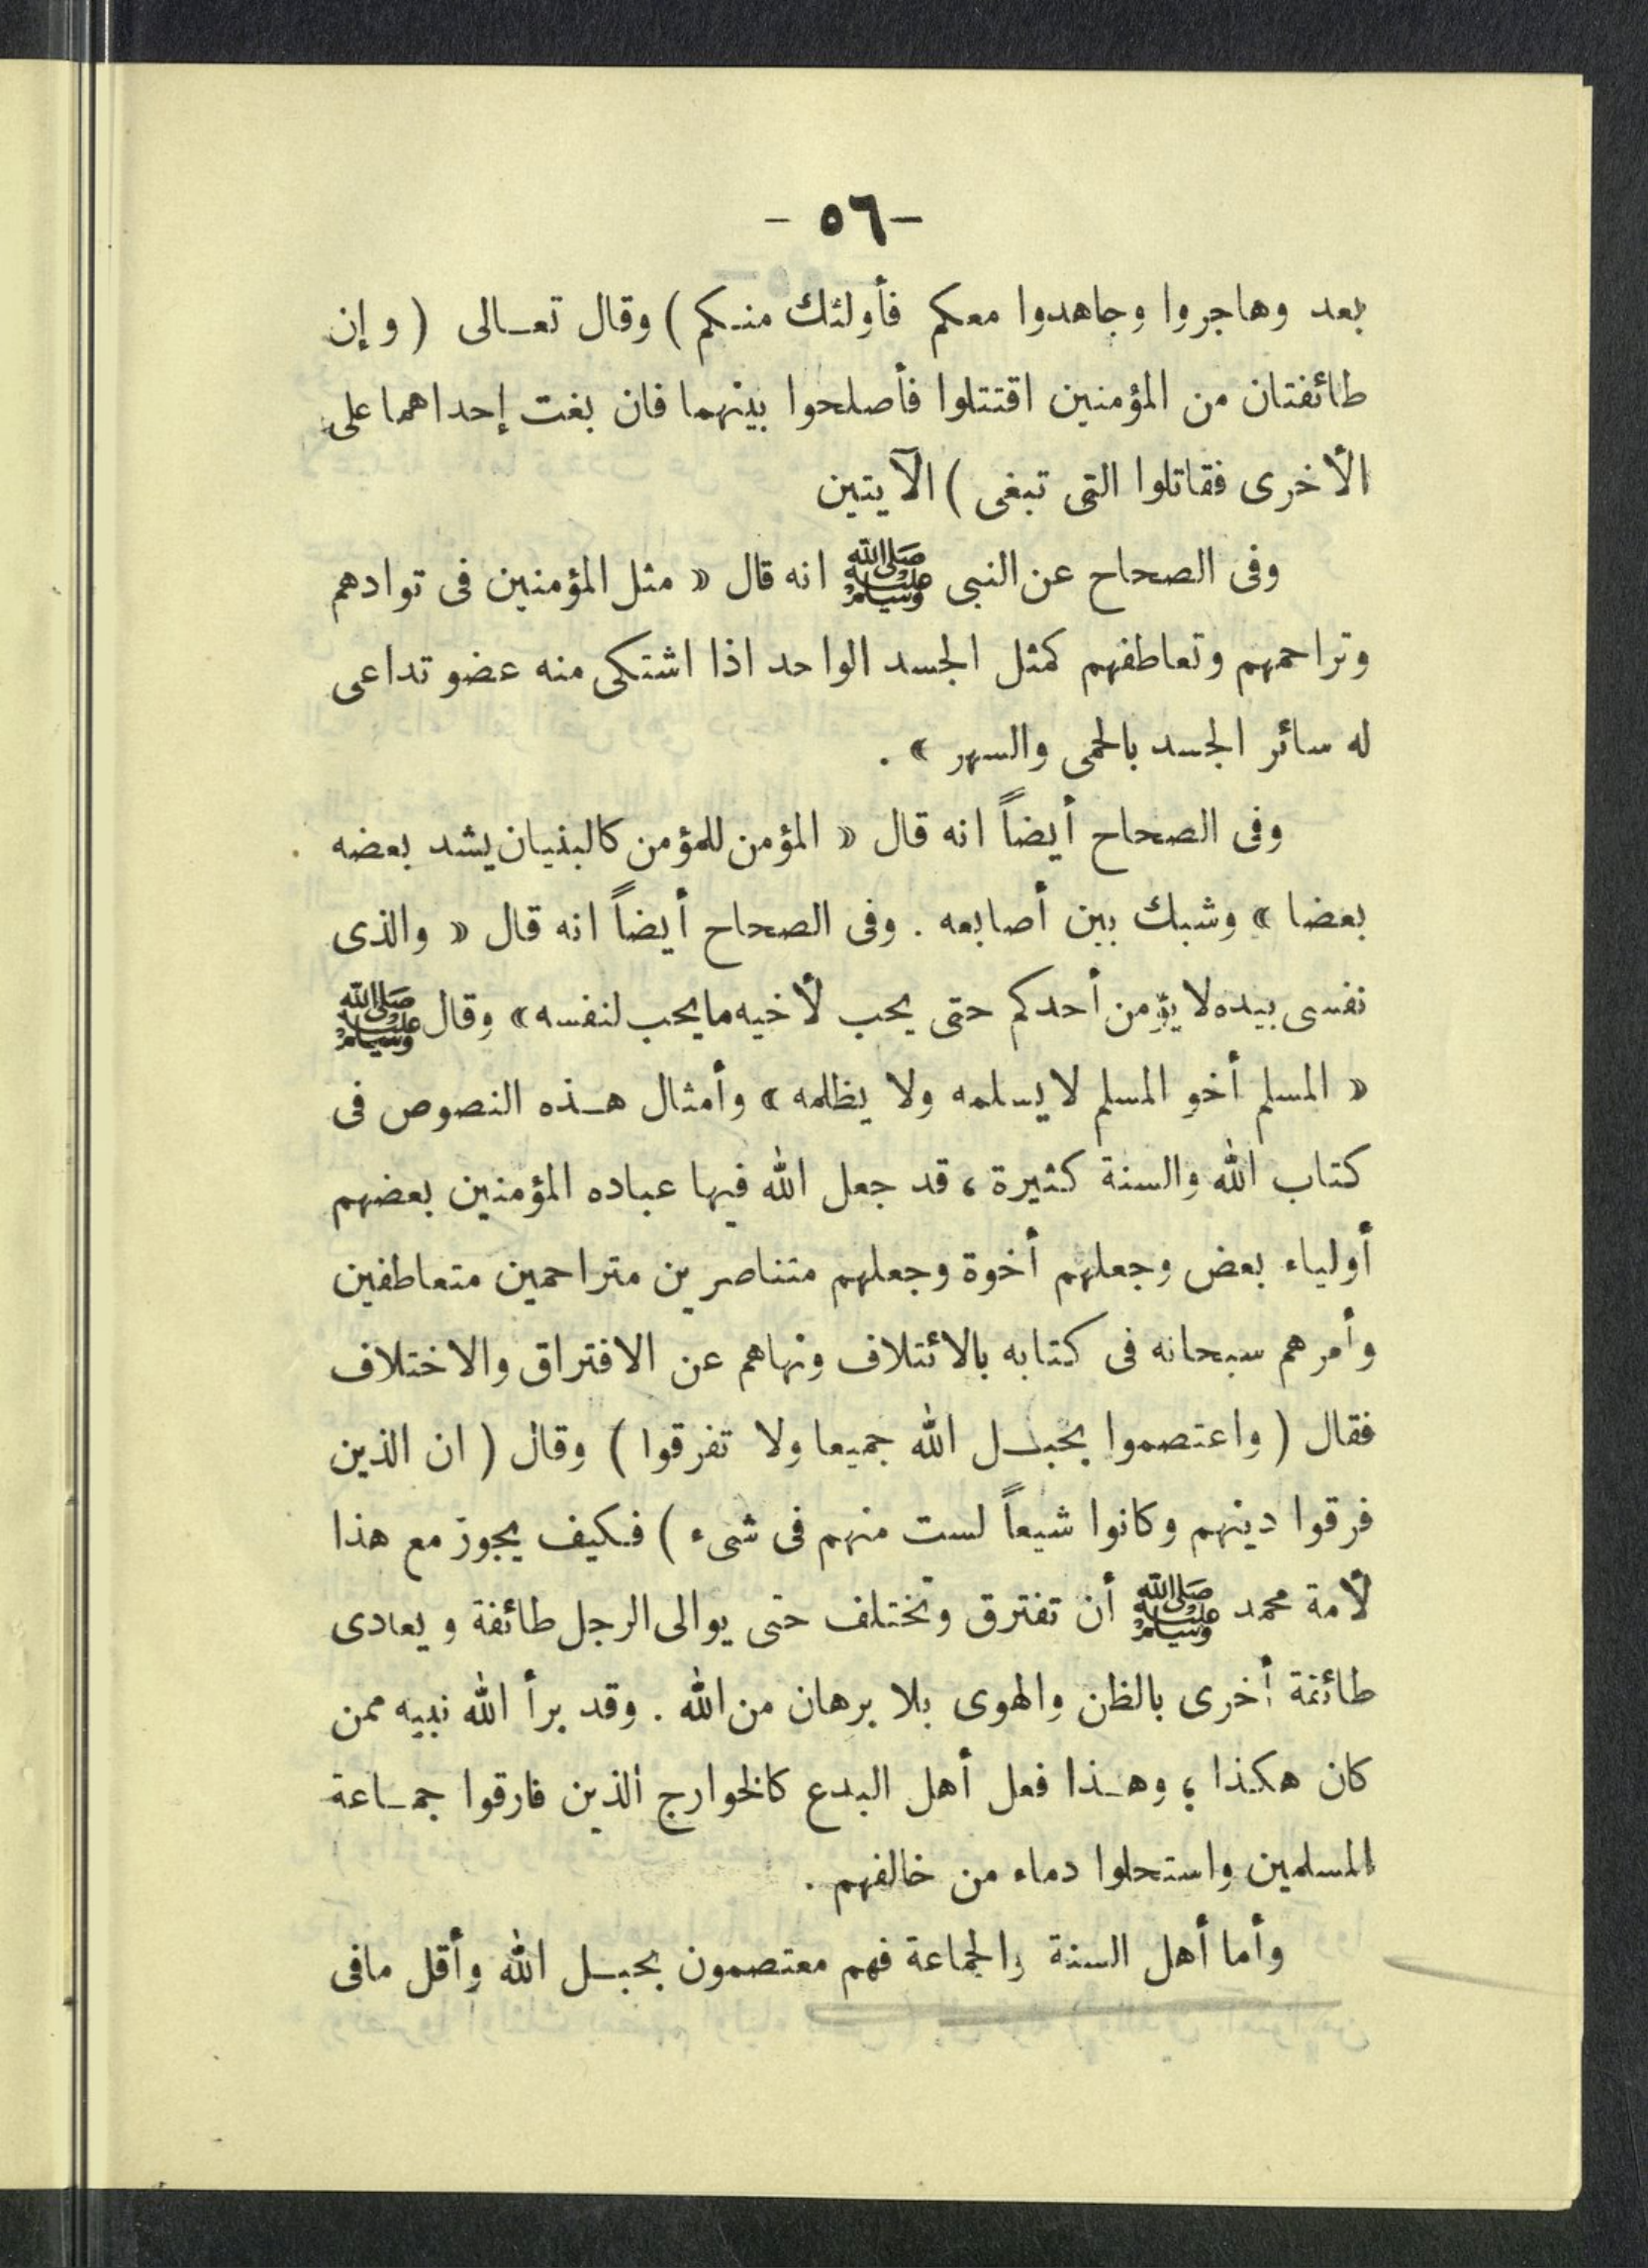 - ٥٦ -
بعد وهاجروا وجاهدوا معكم فأولئك منكم ) وقال تعالى ( و إن
طائفتان من المؤمنين اقتتلوا فأصلحوا بينهما فان بغت إحداهما على
الأخرى فقاتلوا التى تبغى ) الآيتين
وفى الصحاح عن النبى ﷺ انه قال « مثل المؤمنين فى توادهم
وتراحمهم وتعاطفهم كمثل الجسد الواحد اذا اشتكى منه عضو تداعى
له سائر الجسد بالحمى والسهر » .
وفى الصحاح أيضاً انه قال « المؤمن للمؤمن كالبنيان يشد بعضه
بعضا » وشبك بين أصابعه . وفى الصحاح أيضاً انه قال « والذى
نفسى بيده لا يؤمن أحدكم حتى يحب لأخيه ما يحب لنفسه » وقال ﷺ
« المسلم أخو المسلم لا يسلمه ولا يظلمه » وأمثال هذه النصوص فى
كتاب الله والسنة كثيرة ، قد جعل الله فيها عباده المؤمنين بعضهم
أولياء بعض وجعلهم أخوة وجعلهم متناصرين متراحمين متعاطفين
وأمرهم سبحانه فى كتابه بالائتلاف ونهاهم عن الافتراق والاختلاف
فقال ( واعتصموا بحبل الله جميعا ولا تفرقوا ) وقال ( ان الذين
فرقوا دينهم وكانوا شيعاً لست منهم فى شىء ) فكيف يجوز مع هذا
لأمة محمد ﷺ أن تفترق وتختلف حتى يوالى الرجل طائفة و يعادى
طائفة أخرى بالظن والهوى بلا برهان من الله . وقد برأ الله نبيه ممن
كان هكذا ؛ وهذا فعل أهل البدع كالخوارج الذين فارقوا جماعة
المسلمين واستحلوا دماء من خالفهم .
وأما أهل السنة والجماعة فهم معتصمون بحبل الله وأقل مافى